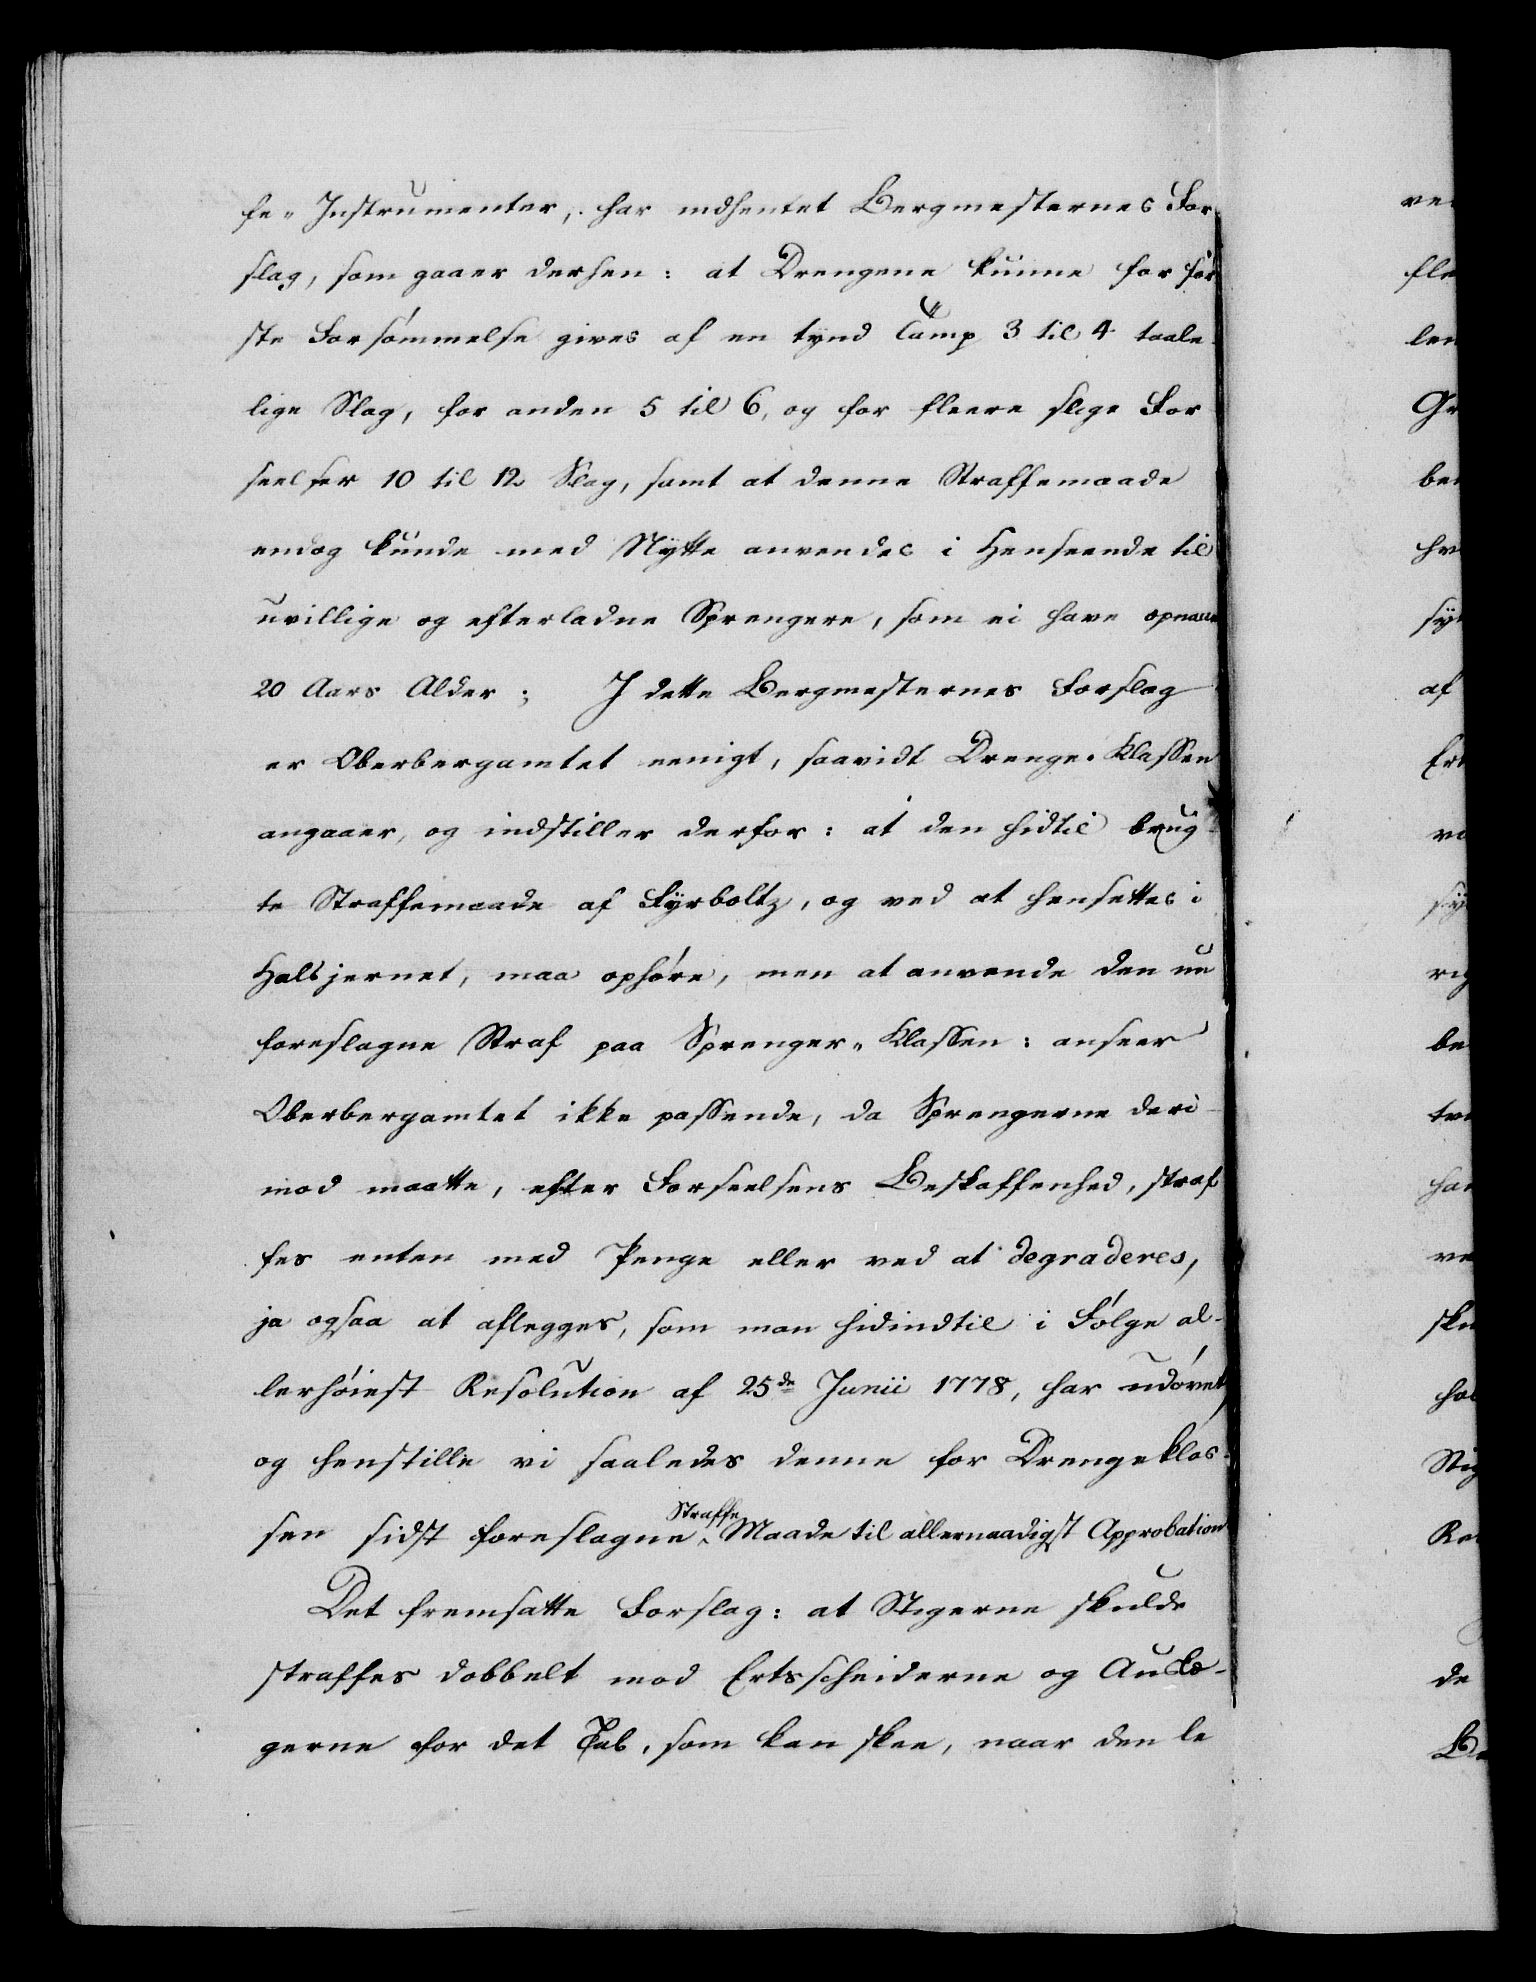 fe„ Instrumenter, har indhentet Bergmesternes For
slag, som gaaer derhen: at Drengene kunne for før
ste Forsømmelse gives af en tynd Tamp 3 til 4 taale
lige Slag, for anden 5 til 6, og for fleere slige For
seelser 10 til 12 Slag, samt at denne Straffemaade
endog kunde med Nytte anvendes i Henseende til
uvillige og efterladne Sprengere, som ei have opnaaet
20 Aars Alder; I dette Bergmesternes Forslag
er Oberbergamtet eenigt, saavidt Drenge-Klassen
angaaer, og indstiller derfor: at den hidtil brug-
te Straffemaade af Fyrboltz, og ved at hensettes i
Halsjernet, maa ophøre, men at anvende den nu
foreslagne Straf paa Sprenger„ Klassen: anseer
Oberbergamtet ikke passende, da Sprengerne deri-
mod maatte, efter Forseelsens Beskaffenhed, straf
fes enten med Penge eller ved at degraderes,
ja ogsaa at aflegges, som man hidindtil i Følge al-
lerhøiest Resolution af 25de Junii 1778, har udøvet,
og henstille vi saaledes denne for Drengeklas-
sen sidst foreslagne Straffe Maade til allernaadigst Approbation
Det fremsatte Forslag: at Stigerne skulde
straffes dobbelt mod Ertsscheiderne og Ausle-
gerne for det Tab, som kan skee, naar den le